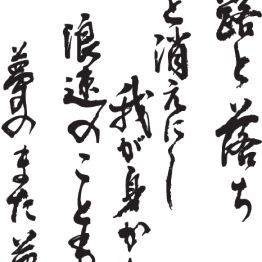 露と落ち
と消えにし
我が身か
浪速のことも
夢のまた夢